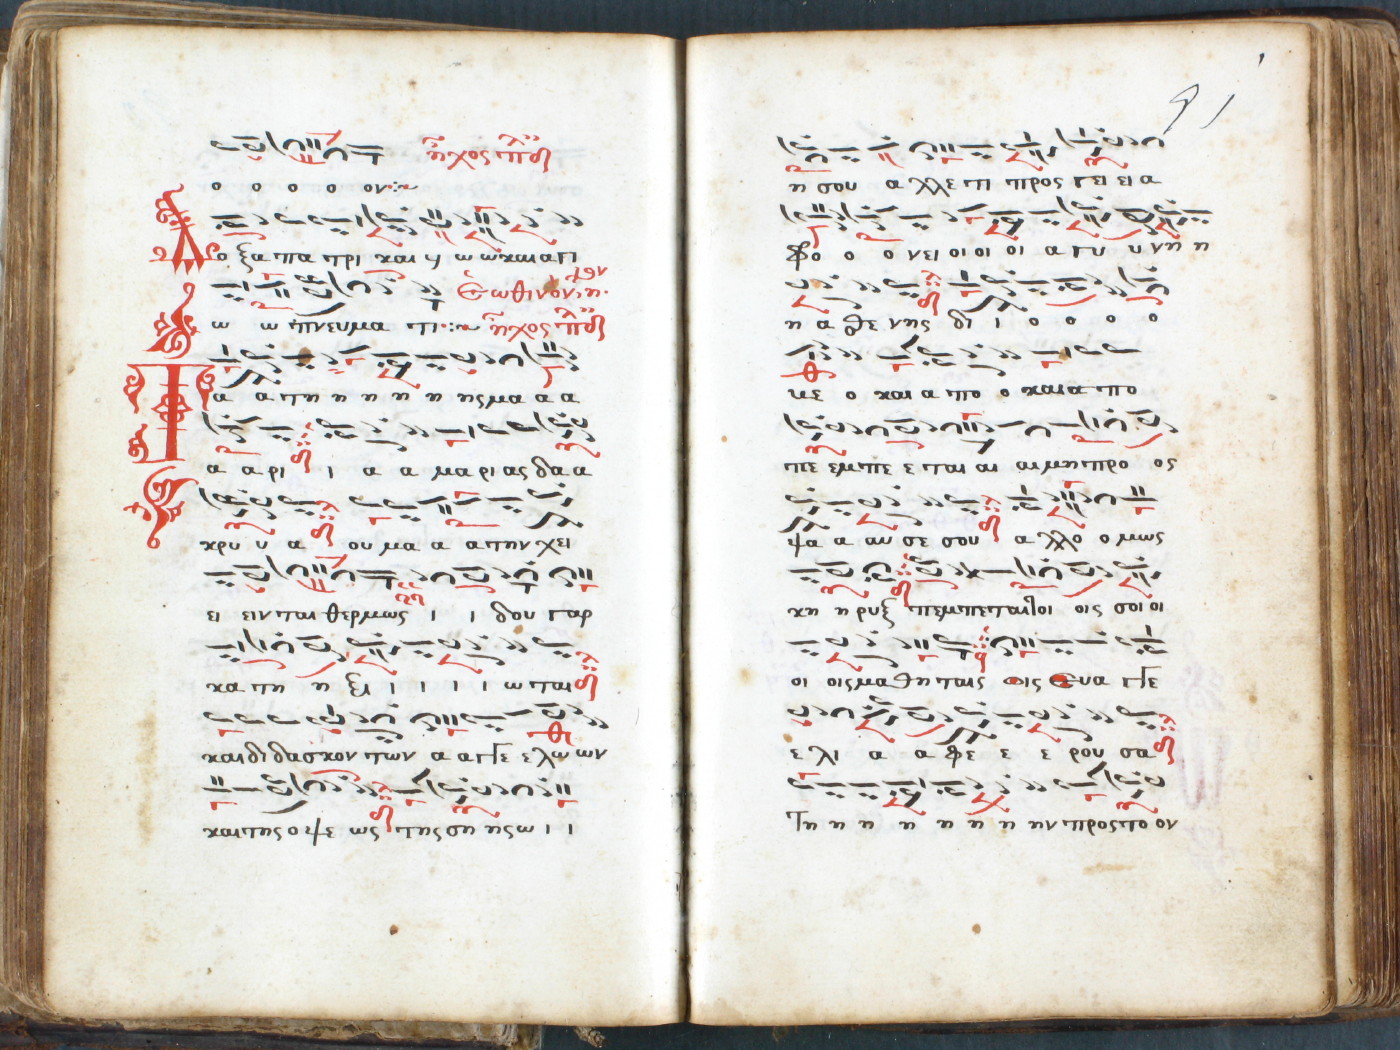 ο ο ο ο ον ἦχος πλ δ
Δοξα πα τρι και υ ω ω και α γι
Ἑωθινον η
ω ω πνευμα τι ἦχος πλ δ
Τα α τη η η η η ης μα α α
α α ρι ι α α μα ρι ας δα α
κρυ υ α ου μα α α την χει
ει ειν ται θερμως ι ι δου γαρ
κα τη η ξι ι ι ι ι ω ται
και δι δασκον των α α γγε ελω ων
και της ο ψε ως της ση ης ω ι ι
91
η σου α λλε τι προς γει ει α
φρο ο ο νει οι οι οι α γυ υ νη η
η α θε νης δι ι ο ο ο ο
με ο και α πο ο και α πο
πε εμπε ε ται αι αι μη προ ος
ψα α αυ σε σου α λλο ο μως
κη η ρυξ πεμπεται οι οις σοι οι
οι οις μα θη ταις οις Ευα γγε
ε λι α α φε ε ε ρου σα
Τη η η η η η η ην προς το ον